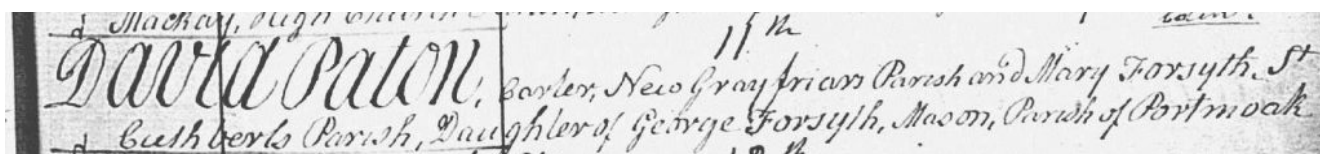 Mackay, High Church
11th
David Paton, Carter, New Grayfriars Parish and Mary Forsyth, St
Cuthberts Parish, Daughter of George Forsyth, Mason, Parish of Portmoak